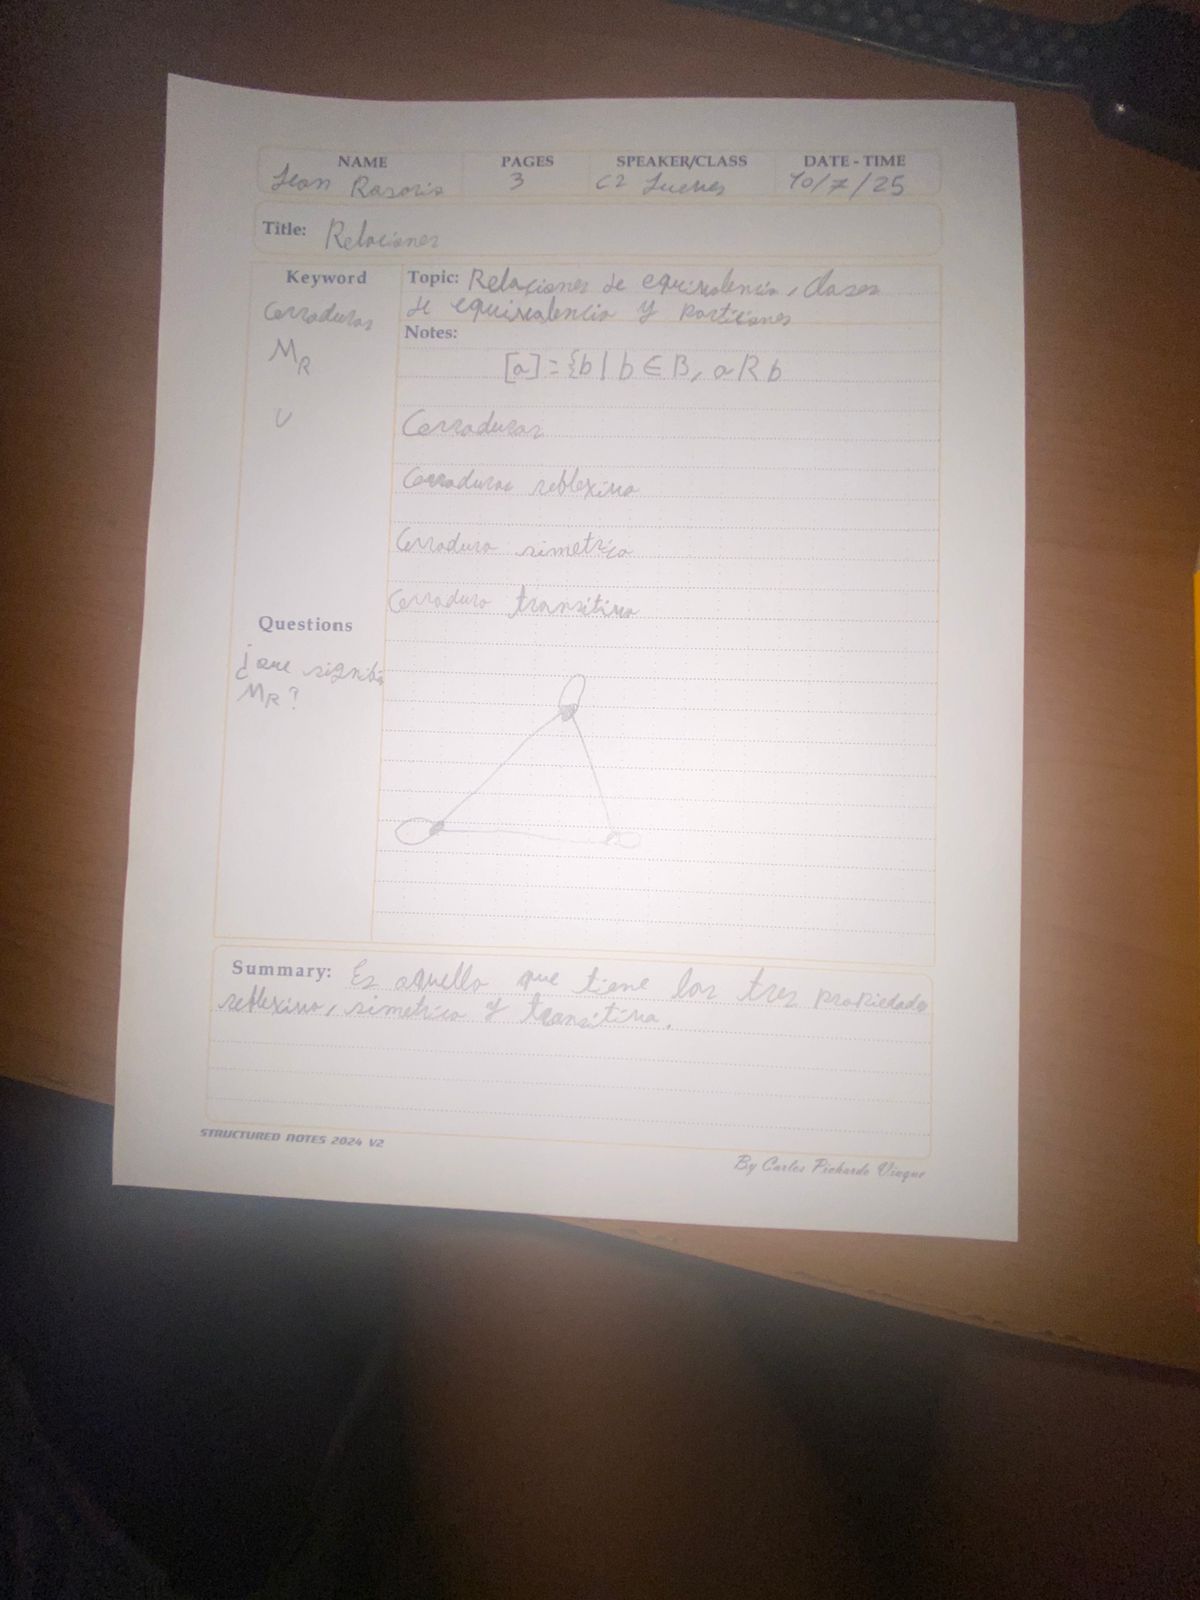 NAME PAGES SPEAKER/CLASS DATE - TIME
Jean Rosario 3 C2 Jueves 10/7/25
Title: Relaciones
Keyword
Cerraduras
M_R
∪
Topic: Relaciones de equivalencia, clases
de equivalencia y particiones
Notes:
[a] = {b | b ∈ B, a R b
Cerraduras
Cerraduras reflexiva
Cerradura simetrica
Cerradura transitiva
Questions
¿que signifi
M_R?
Summary: Es aquello que tiene las tres propiedades
reflexiva, simetrica y transitiva.
STRUCTURED NOTES 2024 V2
By Carlos Pichardo Viuque